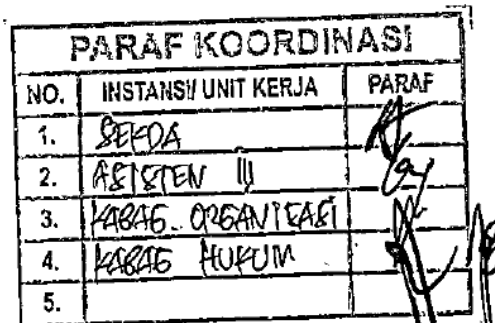 PARAF KOORDINASI
NO. INSTANSI/ UNIT KERJA PARAF
1. SEKDA
2. ASISTEN III
3. KABAG. ORGANISASI
4. KABAG HUKUM
5.